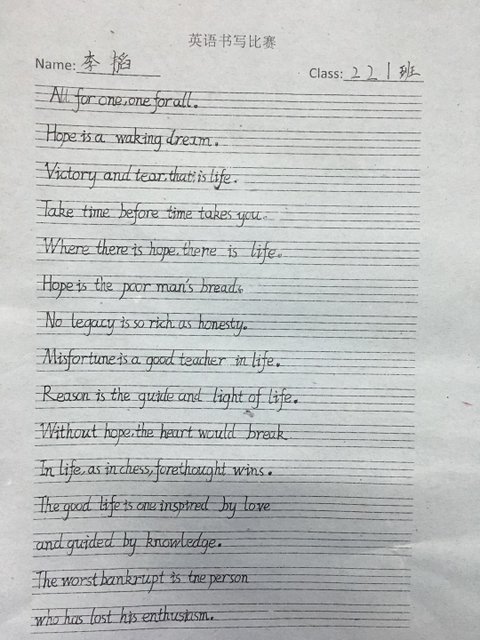 英语书写比赛
Name: 李韬 Class: 221班
All for one, one for all.
Hope is a waking dream.
Victory and tear, that is life.
Take time before time takes you.
Where there is hope, there is life.
Hope is the poor man's bread.
No legacy is so rich as honesty.
Misfortune is a good teacher in life.
Reason is the guide and light of life.
Without hope, the heart would break
In life, as in chess, forethought wins.
The good life is one inspired by love
and guided by knowledge.
The worst bankrupt is tne person
who has lost his enthusiasm.